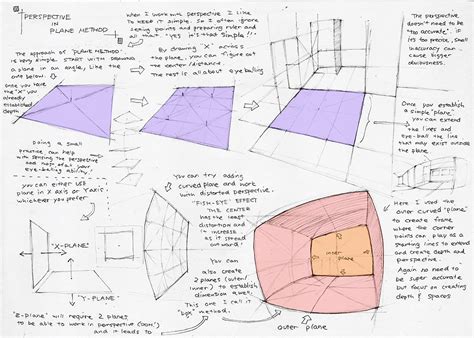 PERSPECTIVE
IN
PLANE METHOD
When I work with perspective I like
to keep it simple. So I often ignore
seeing points and preparing ruler and
all that. "yes it's that simple!!"
The approach of 'PLANE METHOD'
is very simple. START WITH DRAWING
a plane in an angle, Like the
one below.
Once you have
the "X" you
already
established
depth
By drawing 'X' across
the plane, you can figure out
the center/distance.
The rest is all about eyeballing
The perspective
doesn't need to be
"too accurate". if
it's too precise, small
inaccuracy can
cause bigger
obviousness.
Once you establish
a simple "plane"
you can extend
the lines and
eye-ball the line
that may exist outside
the plane.
Doing a small
practice, can help
with sensing the perspective
and most of all your
eye-balling ability!
you can either use
plane in X axis or Y axis
whichever you prefer
'X-PLANE'
'Y-PLANE'
"E-plane" will require 2 planes
to be able to work in perspective (box)
and it leads to
You can try adding
curved plane and work
with distorted perspective.
"FISH-EYE" EFFECT
THE CENTER
has the least
distortion and
increase
as it spread
outward!
You can
also create
2 planes (outer/
inner) to establish
dimension as well.
This one I call it
"box" method.
inner
plane
outer plane
Here I used the
outer curved "plane"
to create frame
where the corner
points can play as a
starting lines to extend
and create depth and
perspective.
Again no need to
be super accurate
but focus on creating
depth & spaces